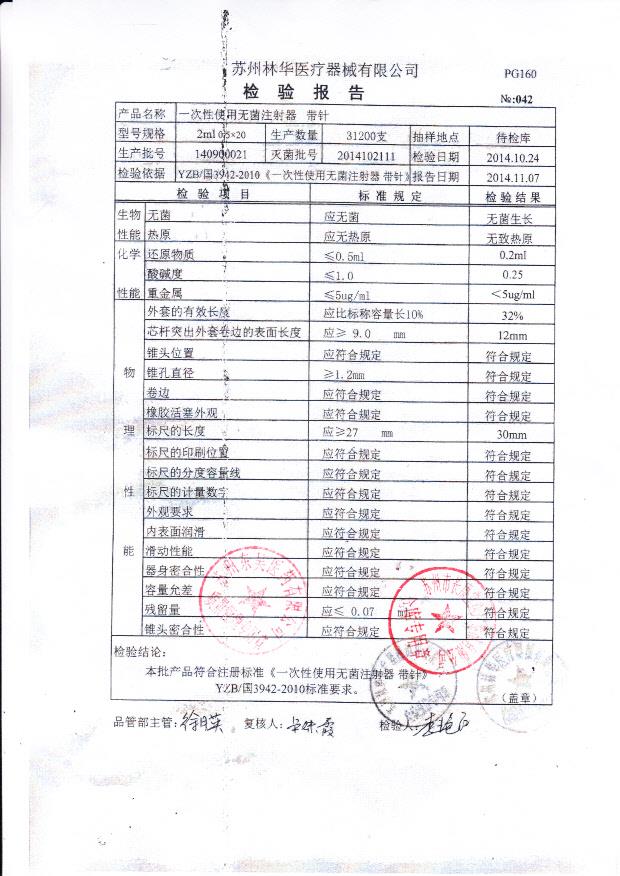 苏州林华医疗器械有限公司
PG160
检 验 报 告
№:042
产品名称 一次性使用无菌注射器 带针
型号规格 2ml 0.5×20 生产数量 31200支 抽样地点 待检库
生产批号 140900021 灭菌批号 2014102111 检验日期 2014.10.24
检验依据 YZB/国3942-2010《一次性使用无菌注射器 带针》 报告日期 2014.11.07
检 验 项 目 标 准 规 定 检 验 结 果
生物 无菌 应无菌 无菌生长
性能 热原 应无热原 无致热原
化学 还原物质 ≤0.5ml 0.2ml
酸碱度 ≤1.0 0.25
性能 重金属 ≤5ug/ml <5ug/ml
外套的有效长度 应比标称容量长10% 32%
芯杆突出外套卷边的表面长度 应≥ 9.0 mm 12mm
锥头位置 应符合规定 符合规定
物 锥孔直径 ≥1.2mm 符合规定
卷边 应符合规定 符合规定
橡胶活塞外观 应符合规定 符合规定
理 标尺的长度 应≥27 mm 30mm
标尺的印刷位置 应符合规定 符合规定
标尺的分度容量线 应符合规定 符合规定
性 标尺的计量数字 应符合规定 符合规定
外观要求 应符合规定 符合规定
内表面润滑 应符合规定 符合规定
能 滑动性能 应符合规定 符合规定
器身密合性 应符合规定 符合规定
容量允差 应符合规定 符合规定
残留量 应≤ 0.07 符合规定
锥头密合性 应符合规定 符合规定
检验结论:
本批产品符合注册标准《一次性使用无菌注射器 带针》
YZB/国3942-2010标准要求。
（盖章）
品管部主管: 复核人: 检验人: